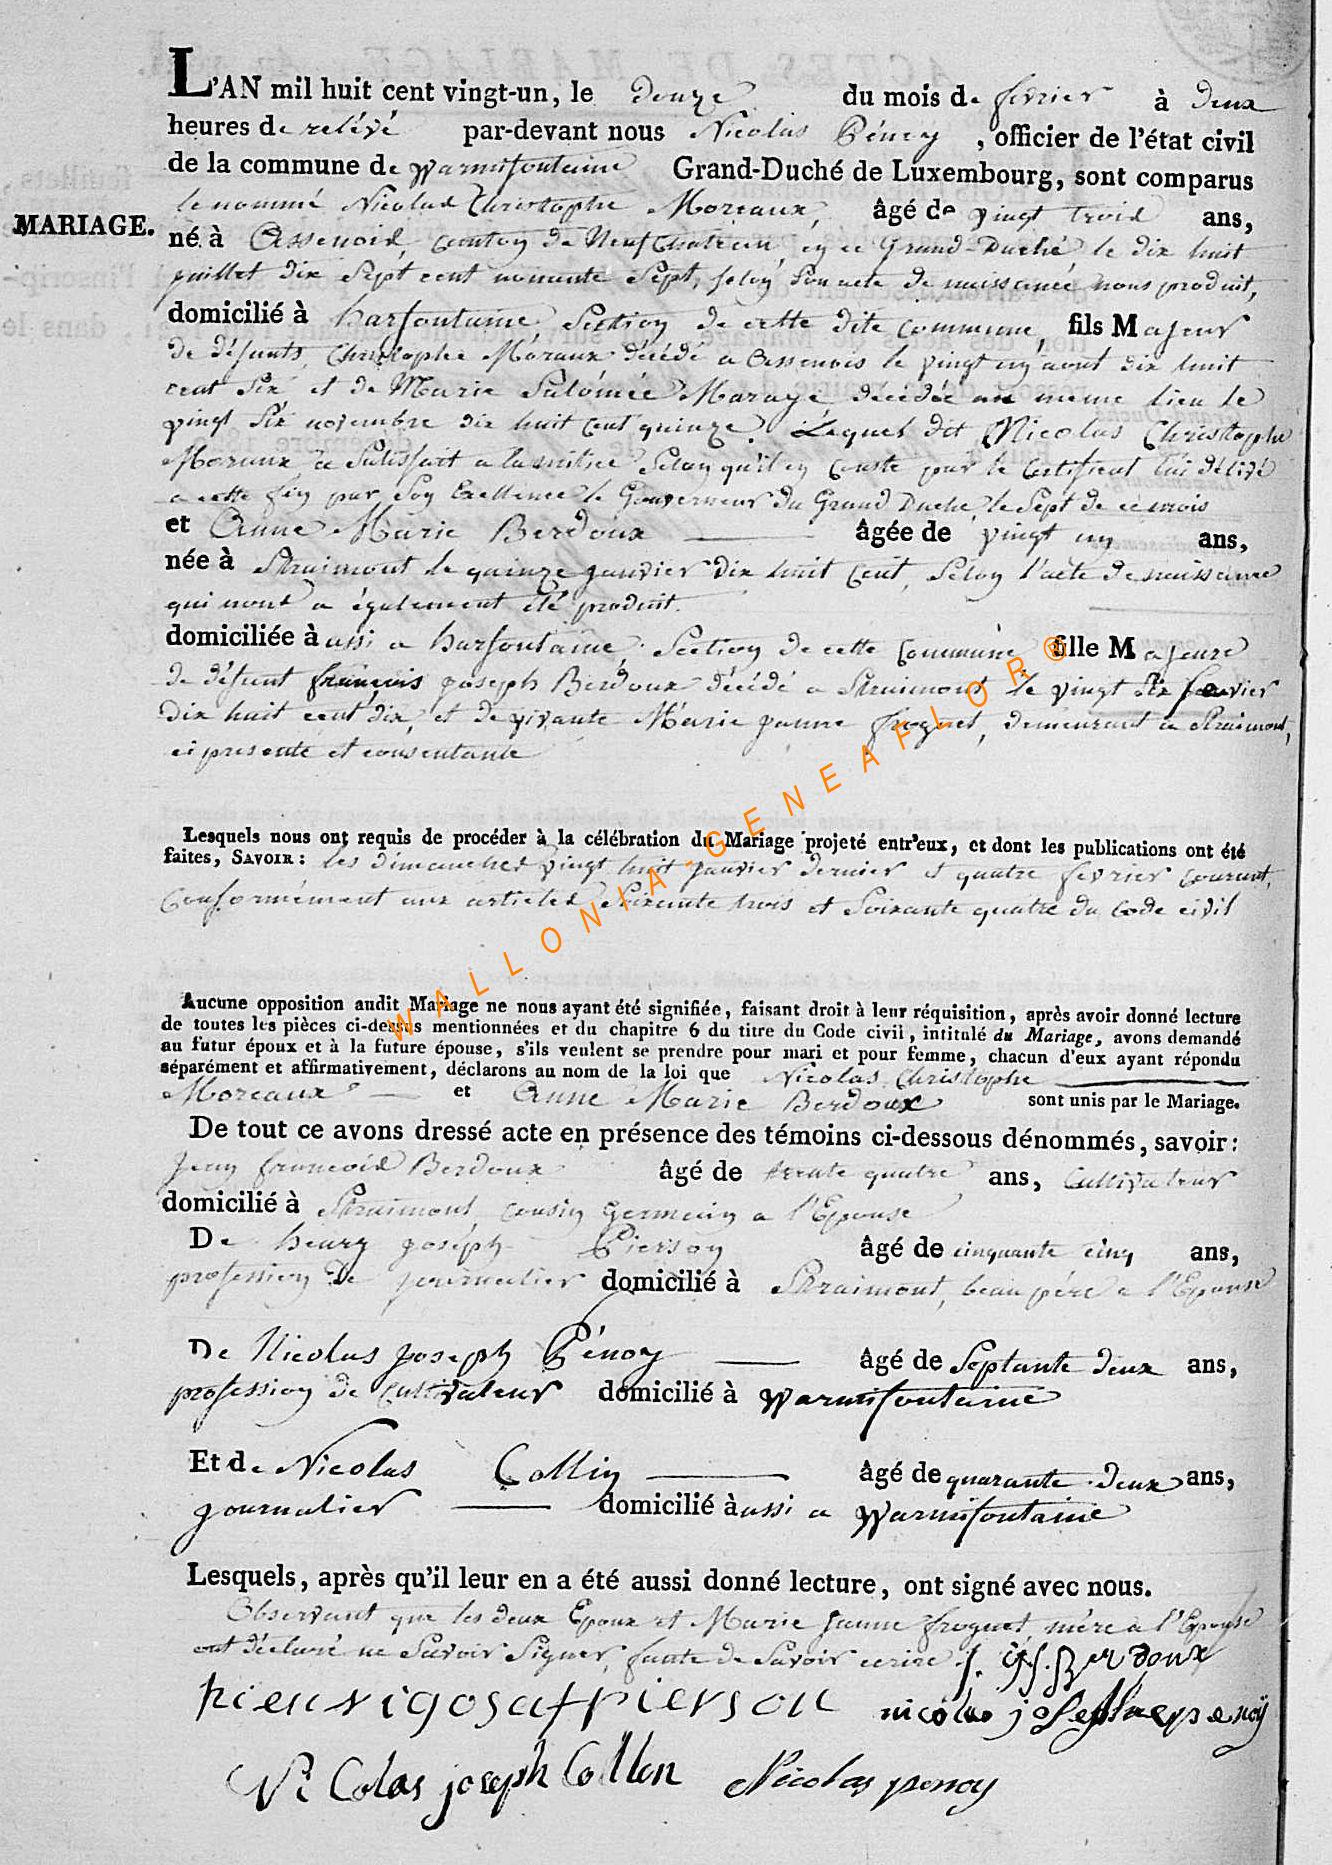 L'AN mil huit cent vingt-un, le douze du mois de fevrier à deux
heures de relévé par-devant nous Nicolas Pénoy, officier de l'état civil
de la commune de Warmifontaine Grand-Duché de Luxembourg, sont comparus
le nommé Nicolas Christophe Moreaux, âgé de vingt trois ans,
MARIAGE.
né à Assenois, canton de Neufchateau, en ce Grand-Duché le dix huit
juillet dix sept cent nonante sept, selon son acte de naissance nous produit,
domicilié à harfontaine, Section de cette dite commune, fils Majeur
de défunts, Christophe Moraux décédé a Assenois le vingt un aout dix huit
cent six et de Marie Salómée Maragé décédée au meme lieu le
vingt six novembre dix huit cent quinze. Lequel dit Nicolas Christophe
Moraux a Satisfait a la milice selon qu'il en conste par le certificat lui délivré
a cette fin par Son Exellence le Gouverneur du Grand Duché, le Sept de ce mois
et Anne Marie Berdoux âgée de vingt un ans,
née à Straimont le quinze janvier dix huit cent, selon l'acte de naissance
qui nous a également été produit.
domiciliée à aussi a harfontaine, Section de cette Commune fille Majeure
de défunt françois joseph Berdoux décédé a Straimont le vingt six
dix huit cent dix, et de vivante Marie jeanne froguet, demeurant a Straimont,
ci présente et consentante
Lesquels nous ont requis de procéder à la célébration du Mariage projeté entr'eux, et dont les publications ont été
faites, SAVOIR : les dimanches vingt huit janvier dernier et quatre fevrier courant,
Conformément aux articles Soixante trois et Soixante quatre du Code civil
Aucune opposition audit Mariage ne nous ayant été signifiée, faisant droit à leur réquisition, après avoir donné lecture
de toutes les pièces ci-dessus mentionnées et du chapitre 6 du titre du Code civil, intitulé du Mariage, avons demandé
au futur époux et à la future épouse, s'ils veulent se prendre pour mari et pour femme, chacun d'eux ayant répondu
séparément et affirmativement, déclarons au nom de la loi que Nicolas Christophe
Moreaux et Anne Marie Berdoux sont unis par le Mariage.
De tout ce avons dressé acte en présence des témoins ci-dessous dénommés, savoir :
Jean francois Berdoux âgé de trente quatre ans, Cultivateur
domicilié à Straimont cousin Germain a l'Epouse
De henry joséph Pierson âgé de cinquante cinq ans,
profession de journalier domicilié à Straimont, beau pére a l'Epouse
De Nicolas joseph Pénoy âgé de Septante deux ans,
profession de Cultivateur domicilié à Warmifontaine
Et de Nicolas Collin âgé de quarante deux ans,
journalier domicilié à aussi a Warmifontaine
Lesquels, après qu'il leur en a été aussi donné lecture, ont signé avec nous.
Observant que les deux Epoux et Marie Jeanne froguet, mére a l'Epouse
ont déclaré ne Savoir Signer, faute de Savoir ecrire
nicolas joseph penoÿ
Nicolas joseph Collen Nicolas penoy
WALLONIA-GENEAFLOR®